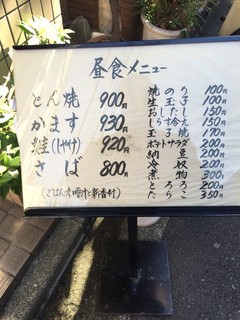 昼食メニュー
とん焼 900円
かます 930円
鮭(しゃけ) 920円
さば 800円
(ごはん 味噌汁 新香付)
焼のり 100円
生玉子 100円
おしたし 150円
しらす冷え 150円
玉子焼 170円
ポテトサラダ 200円
納豆 200円
冷奴 200円
煮物 300円
とろろ 200円
たらこ 350円